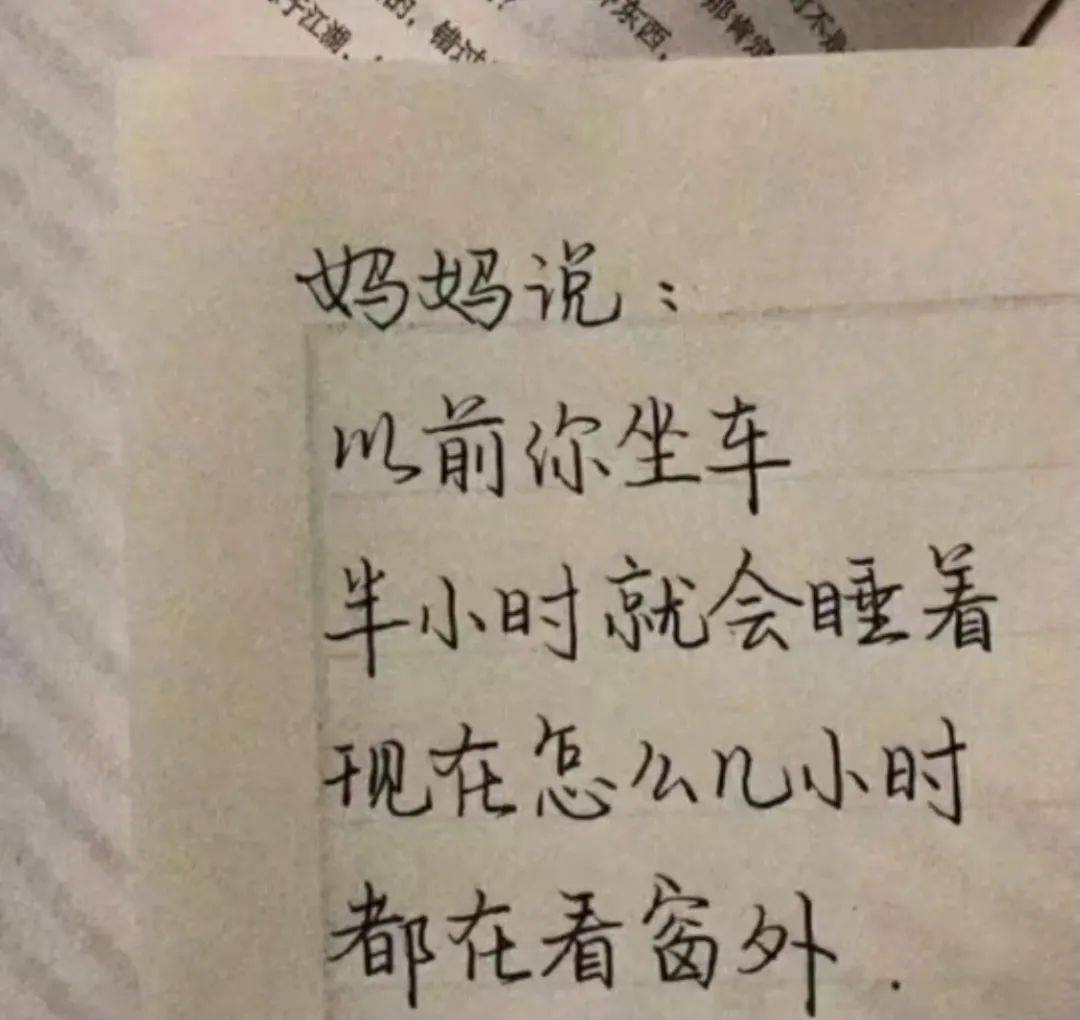 于江湖，
的，错过
东西，
那肯定
时不是
妈妈说：
以前你坐车
半小时就会睡着
现在怎么几小时
都在看窗外.